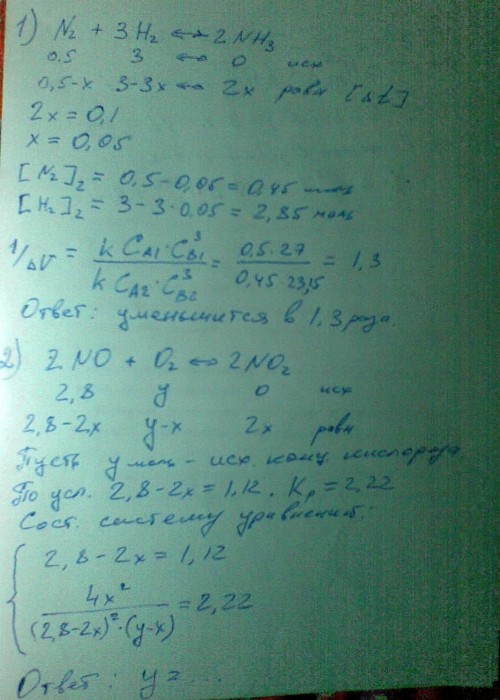 1) N₂ + 3H₂ ↔ 2NH₃
0,5 3 ↔ 0 исх
0,5-x 3-3x ↔ 2x равн [Δt]
2x = 0,1
x = 0,05
[N₂]₂ = 0,5-0,05 = 0,45 моль
[H₂]₂ = 3-3·0,05 = 2,85 моль
1/ΔV = k C_A1·C_B1³ / k C_A2·C_B2³ = 0,5·27 / 0,45·23,15 = 1,3
Ответ: уменьшится в 1,3 раза.
2) 2NO + O₂ ↔ 2NO₂
2,8 y 0 исх
2,8-2x y-x 2x равн
Пусть y моль - исх. конц. кислорода
По усл. 2,8-2x = 1,12. Kр = 2,22
Сост. систему уравнений:
{ 2,8-2x = 1,12
4x² / (2,8-2x)²·(y-x) = 2,22
Ответ: y = ...